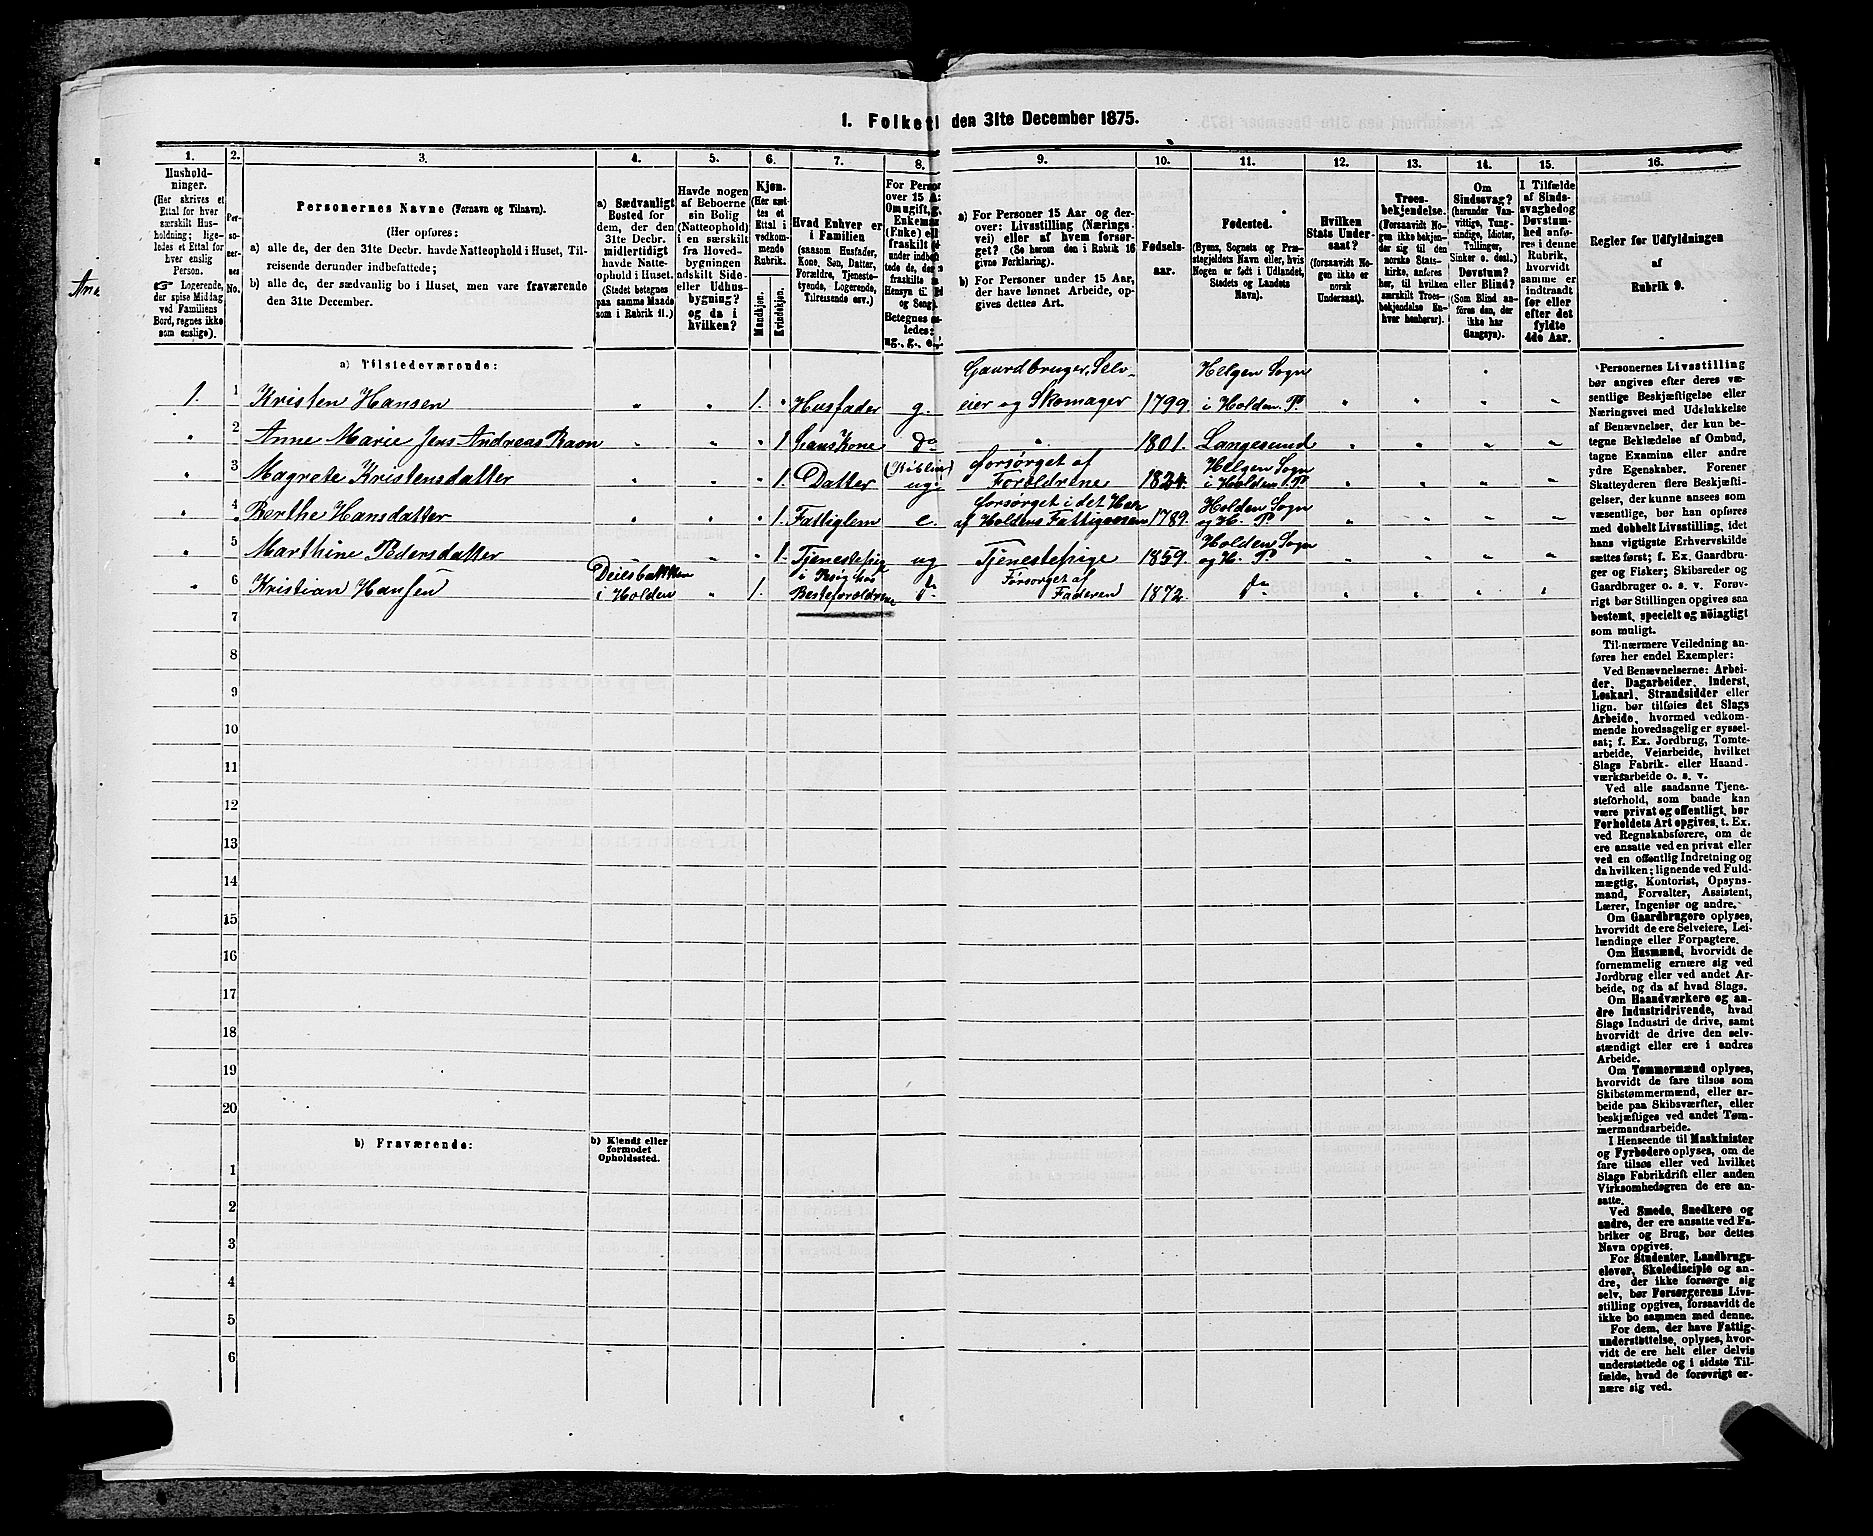 1. Folket
den 31te December 1875.
1.
Hushold-
ninger.
(Her skrives et
Ettal for hver
særskilt Hus-
holdning; lige-
ledes et Ettal for
hver enslig
Person.
Logerende,
der spise Middag
ved Familiens
Bord, regnes ikke
som enslige).
2.
Per-
so-
ner-
nes
No.
3.
Personernes Navne (Fornavn og Tilnavn).
(Her opføres:
a) alle de, der den 31te Decbr. havde Natteophold i Huset, Til-
reisende derunder indbefattede;
b) alle de, der sædvanlig bo i Huset, men vare fraværende
den 31te December.
4.
a) Sædvanligt
Bosted for
dem, der den
31te Decbr.
midlertidigt
havde Natte-
ophold i Huset.
(Stedet betegnes
paa samme Maade
som i Rubrik 11.)
5.
Havde nogen
af Beboerne
sin Bolig
(Natteophold)
i en særskilt
fra Hoved-
bygningen
adskilt Side-
eller Udhus-
bygning?
og da i
hvilken?
6.
Kjøn.
(Her sæt-
tes et
Ettal i
vedkom-
mende
Rubrik.
Mandkjøn.
Kvindekjøn.
7.
Hvad Enhver er
i Familien
(saasom Husfader,
Kone, Søn, Datter,
Forældre, Tjeneste-
tyende, Logerende,
Tilreisende osv.)
8.
For Person
over 15 A
Om ugift, g
Enkeman
(Enke) ell
fraskilt
under indbe
tede de, der
fraskilte
Hensyn til
og Seng
Betegnes
ledes:
ug., g., e.,
9.
a) For Personer 15 Aar og der-
over: Livsstilling (Nærings-
vei) eller af hvem forsør-
get? (Se herom den i Rubrik 16
givne Forklaring).
b) For Personer under 15 Aar,
der have lønnet Arbeide, op-
gives dettes Art.
10.
Fødsels-
aar.
11.
Fødested.
(Byens, Sognets og Præ-
stegjeldets Navn eller, hvis
Nogen er født i Udlandet,
Stedets og Landets
Navn).
12.
Hvilken
Stats Under-
saat?
(forsaavidt No-
gen ikke er
norsk
Undersaat).
13.
Troes-
bekjendelse.
(Forsaavidt No-
gen ikke bekjen-
der sig til den
norske Stats-
kirke, anføres
her, til hvilken
særskilt Troes-
bekjendelse En-
hver henhører).
14.
Om
Sindssvag?
(herunder Van-
vittige, Tung-
sindige, Idioter,
Tullinger,
Sinker o. desl.)
Døvstum?
eller Blind?
(Som Blind an-
føres den, der
ikke har
Gangsyn).
15.
I Tilfælde
af Sinds-
svaghed og
Døvstum-
hed anføres
i denne
Rubrik,
hvorvidt
samme er
indtraadt
før eller
efter det
fyldte
4de Aar.
16.
Regler for Udfyldningen
af
Rubrik 9.
a) Tilstedeværende:
1. 1 Kristen Hansen 1. Husfader g. Gaardbruger, Selv-
eier og Skomager 1799. Helgen Sogn
i Holden P.
2 Anne Marie Jens Andreas Raon 1. hans Kone do 1801. Langesund
3 Magrete Kristensdatter 1. Datter ug. Forsørget af
Forældrene 1824. Helgen Sogn
i Holden P.
4 Berthe Hansdatter 1. Fattiglem e. Forsørget i det Hele
af Holdens Fattigvæsen 1789. Holden Sogn
og H. P.
5 Marthine Pedersdatter 1. Tjenestepige ug Tjenestepige 1859. Holden Sogn
og H. P.
6 Kristian Hansen Deiesbakken
i Holden 1. i Besøg hos
Besteforældrene do Forsørget af
Faderen 1872. do
7
8
9
10
11
12
13
14
15
16
17
18
19
20
b) Fraværende:
b) Kjendt eller
formodet
Opholdssted.
1
2
3
4
5
6
Personernes Livsstilling
bør angives efter deres væ-
sentlige Beskjæftigelse eller
Næringsvei med Udelukkelse
af Benævnelser, der kun be-
tegne Beklædelse af Ombud,
tagne Examina eller andre
ydre Egenskaber. Forener
Skatteyderen flere Beskjæfti-
gelser, der kunne ansees som
væsentlige, bør han opføres
med dobbelt Livsstilling, idet
hans vigtigste Erhvervskilde
sættes først; f. Ex. Gaardbru-
ger og Fisker; Skibsreder og
Gaardbruger o. s. v. Forøv-
rigt bør Stillingen opgives saa
bestemt, specielt og nöiagtigt
som muligt.
Til nærmere Veiledning an-
føres her endel Exempler:
Ved Benævnelserne: Arbei-
der, Dagarbeider, Inderst,
Løskarl, Strandsidder eller
lign. bør tilføies det Slags
Arbeide, hvormed vedkom-
mende hovedsagelig er syssel-
sat; f. Ex. Jordbrug, Tomte-
arbeide, Veiarbeide, hvilket
Slags Fabrik- eller Haand-
værksarbeide o. s. v.
Ved alle saadanne Tjene-
steforhold, som baade kan
være privat og offentligt, bør
Forholdets Art opgives, t. Ex.
ved Regnskabsførere, om de
ere ansatte ved en privat eller
ved en offentlig Indretning og
da hvilken; lignende ved Fuld-
mægtig, Kontorist, Opsyns-
mand, Forvalter, Assistent,
Lærer, Ingeniør og andre.
Om Gaardbrugere oplyses,
hvorvidt de ere Selveiere, Lei-
lændinge eller Forpagtere.
Om Husmænd, hvorvidt de
fornemmelig ernære sig ved
Jordbrug eller ved andet Ar-
beide, og da af hvad Slags.
Om Haandværkere og an-
dre Industridrivende, hvad
Slags Industri de drive, samt
hvorvidt de drive den selv-
stændigt eller ere i andres
Arbeide.
Om Tømmermænd oplyses,
hvorvidt de fare tilsøs som
Skibstømmermænd, eller ar-
beide paa Skibsværfter, eller
beskjæftiges ved andet Tøm-
mermandsarbeide.
I Henseende til Maskinister
og Fyrbødere oplyses, om de
fare tilsøs eller ved hvilket
Slags Fabrikdrift eller anden
Virksomhedsgren de ere an-
satte.
Ved Smede, Snedkere og
andre, der ere ansatte ved Fa-
briker og Brug, bør dettes
Navn opgives.
For Studenter, Landbrugs-
elever, Skoledisciple og an-
dre, der ikke forsørge sig
selv, bør Forsørgerens Livs-
stilling opgives, forsaavidt de
ikke bo sammen med denne.
For dem, der have Fattig-
understøttelse, oplyses, hvor-
vidt de ere helt eller delvis
understøttede og i sidste Til-
fælde, hvad de forøvrigt er-
nære sig ved.